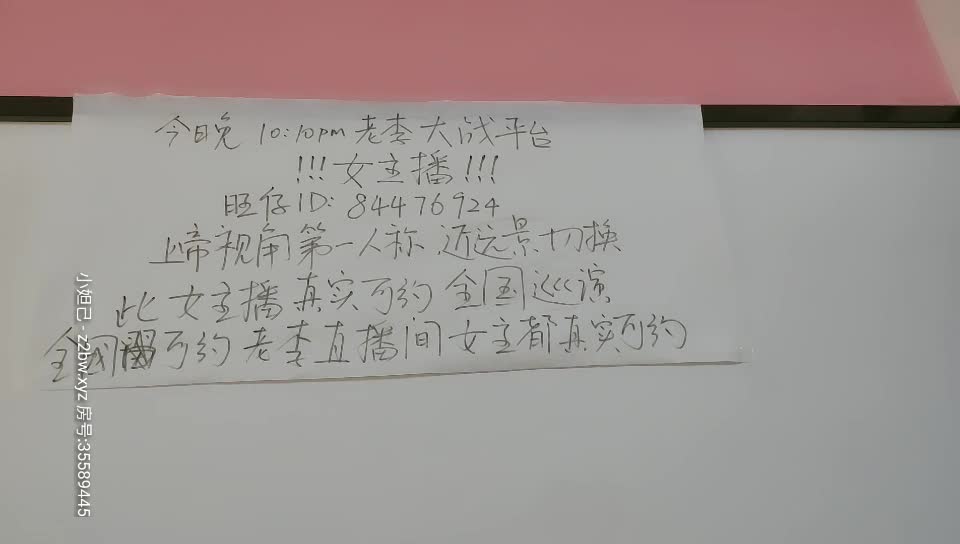 今日晚 10:10pm 老李大战平台
!!!女主播!!!
旺仔ID: 84476924
上帝视角第一人称 近远景切换
此女主播真实可约 全国巡演
全国可约老李直播间女主都真实可约
小妲己 - z2bw.xyz 房号:35589445